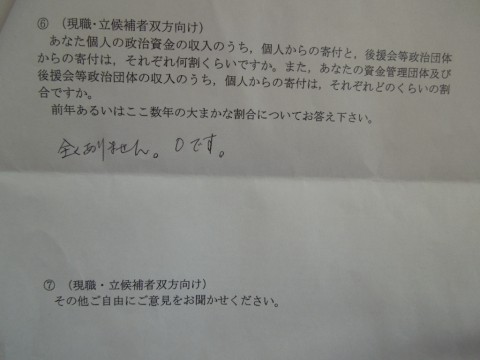 ⑥ (現職・立候補者双方向け)
あなた個人の政治資金の収入のうち，個人からの寄付と，後援会等政治団体
からの寄付は，それぞれ何割くらいですか。また，あなたの資金管理団体及び
後援会等政治団体の収入のうち，個人からの寄付は，それぞれどのくらいの割
合ですか。
前年あるいはここ数年の大まかな割合についてお答え下さい。
全くありません。0です。
⑦ (現職・立候補者双方向け)
その他ご自由にご意見をお聞かせください。